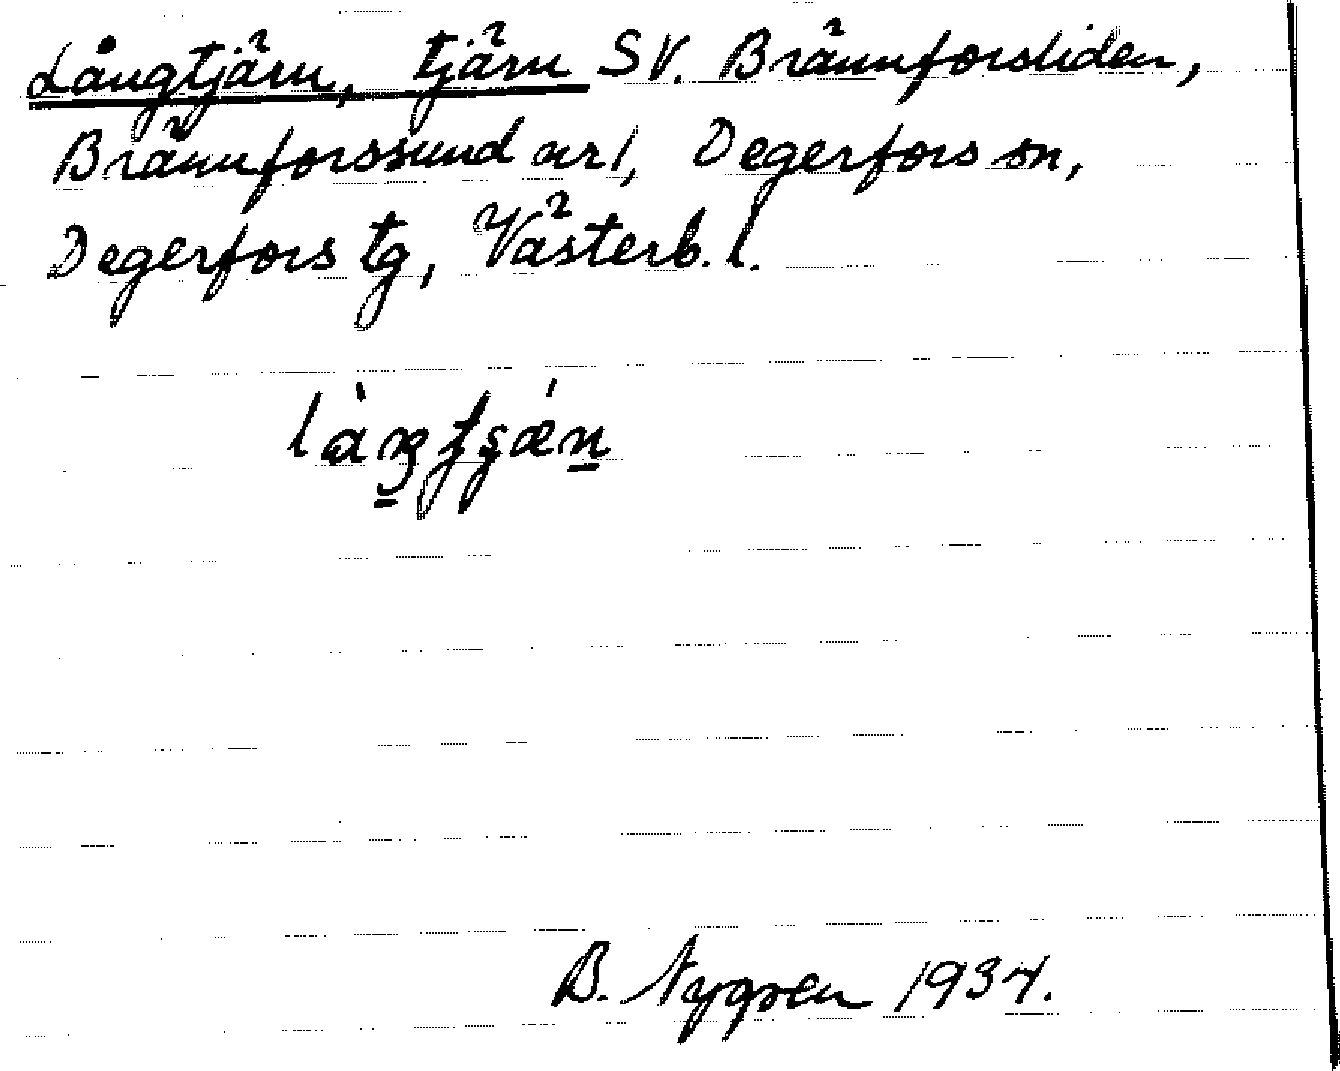 Långtjärn, tjärn SV. Brännforsliden,
Brännforssund nr 1, Degerfors sn,
Degerfors tg, Västerb. l.
B. Nygren 1934.